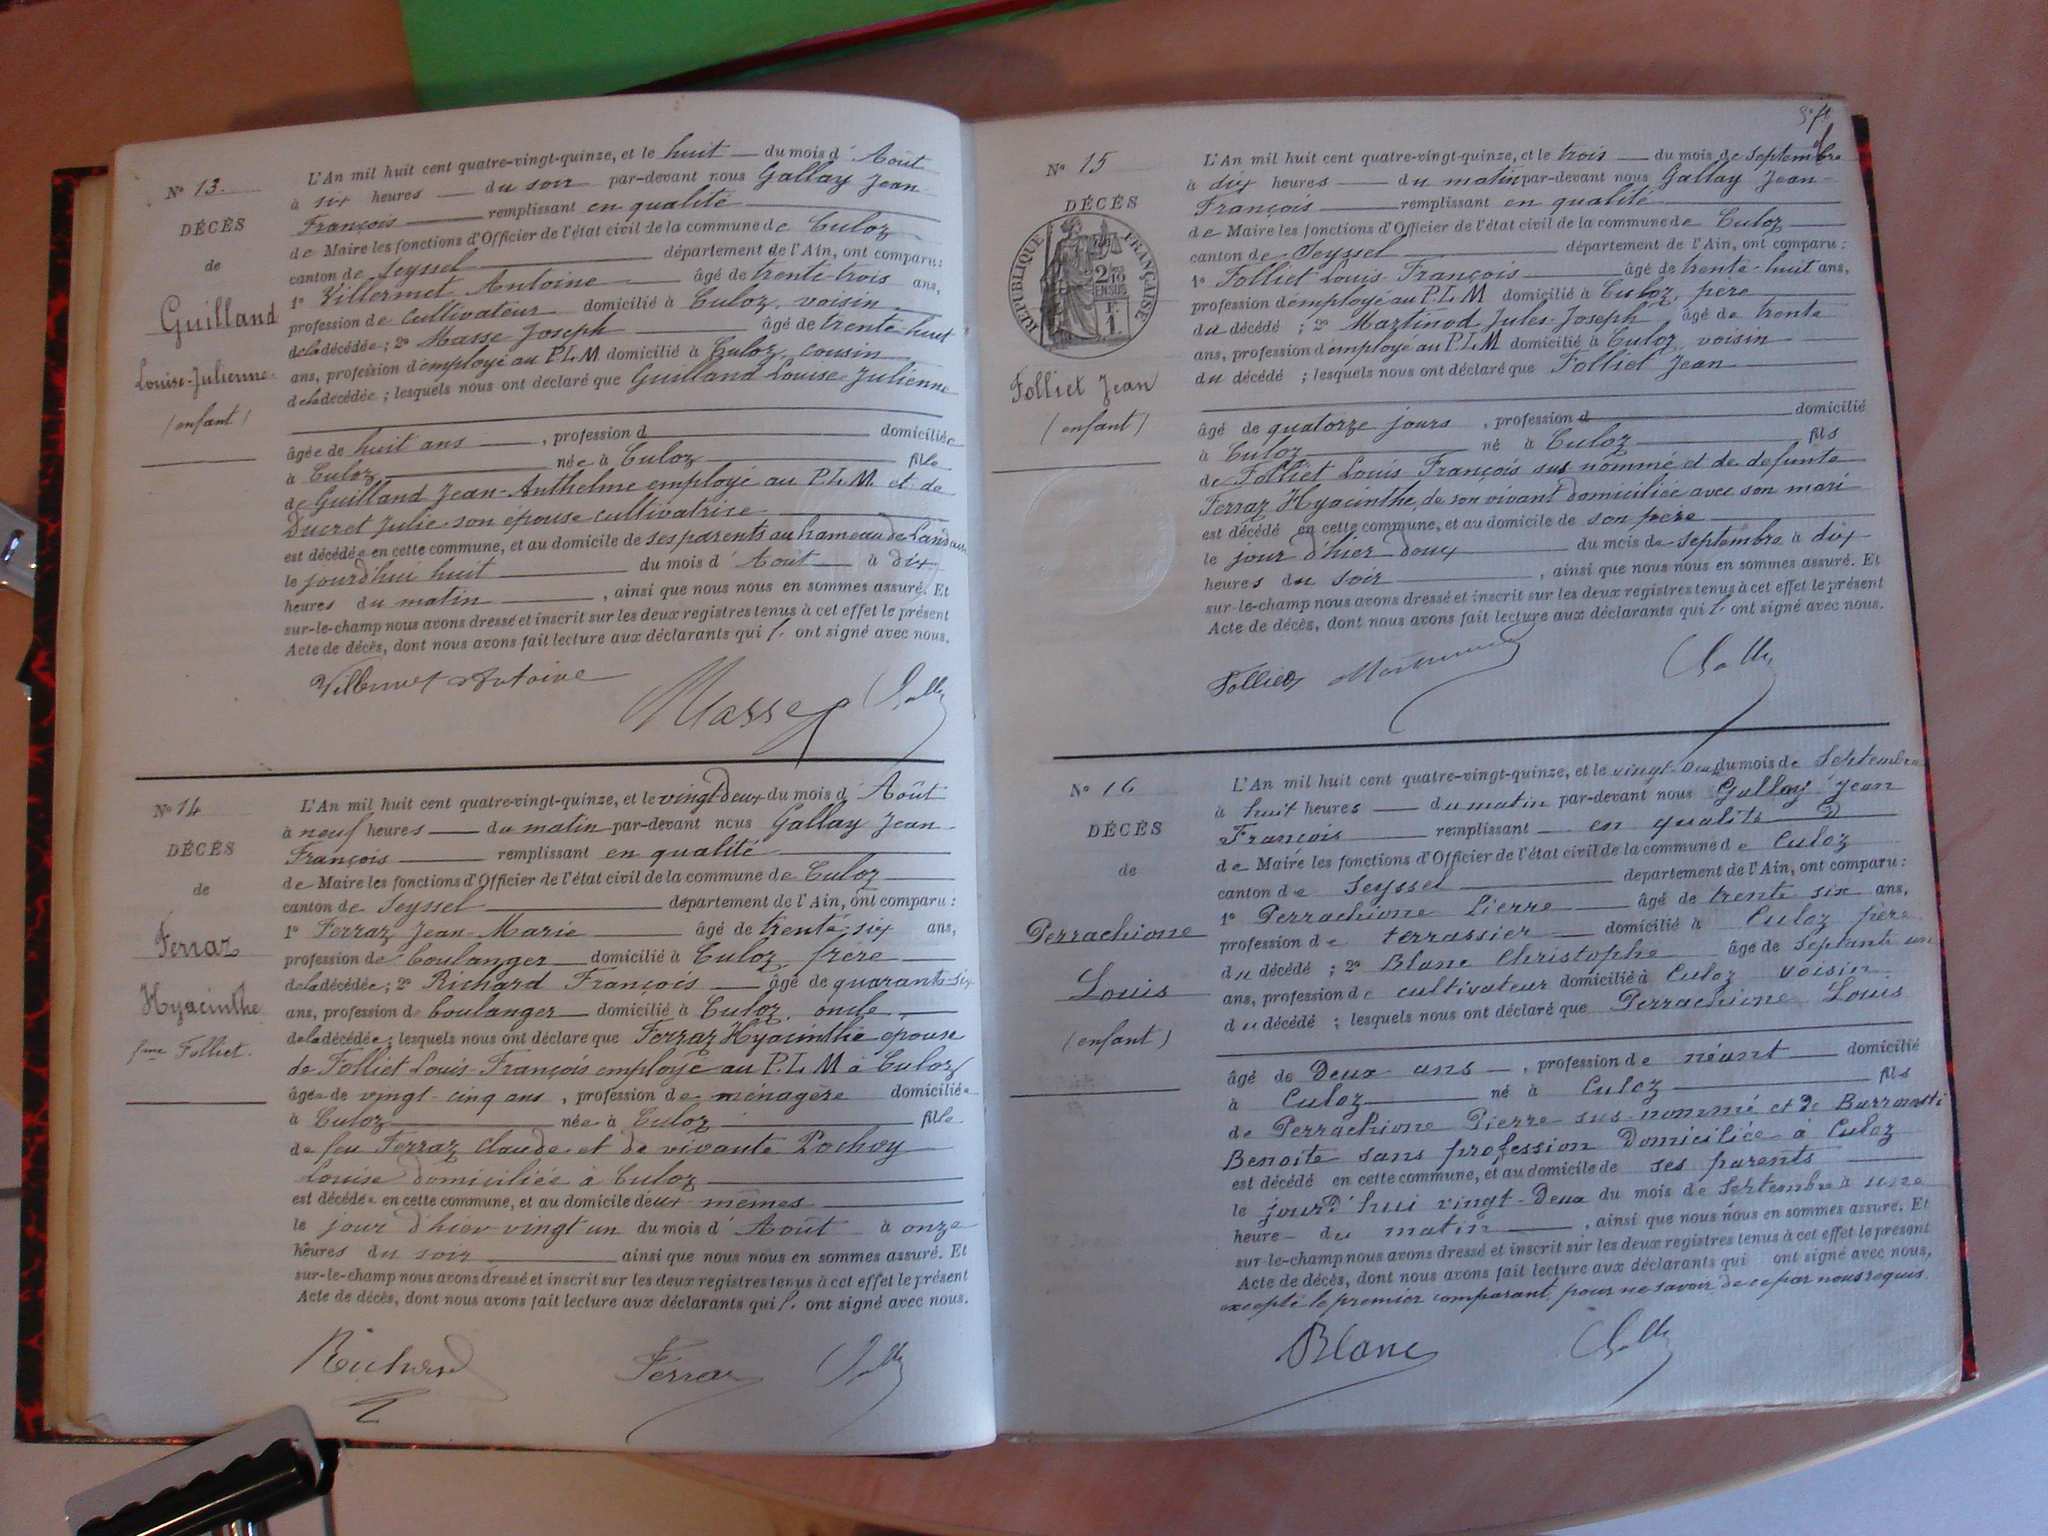 N° 13.
DÉCÈS
de
Guilland
Louise-Julienne
(enfant)
L'An mil huit cent quatre-vingt-quinze, et le huit du mois d'Août
à six heures du soir par-devant nous Gallay Jean-
François remplissant en qualité
de Maire les fonctions d'Officier de l'état civil de la commune de Culoz
canton de Seyssel département de l'Ain, ont comparu:
1° Villermet Antoine âgé de trente-trois ans,
profession de cultivateur domicilié à Culoz, voisin
de la décédée; 2° Masse Joseph âgé de trente-huit
ans, profession d'employé au P.L.M domicilié à Culoz, cousin
de la décédée; lesquels nous ont déclaré que Guilland Louise-Julienne
âgée de huit ans, profession d domiciliée
à Culoz née à Culoz fille
de Guilland Jean-Anthelme employé au P.L.M. et de
Ducret Julie son épouse cultivatrice
est décédée en cette commune, et au domicile de ses parents au hameau de
le jourd'hui huit du mois d'Août à dix
heures du matin, ainsi que nous nous en sommes assuré. Et
sur-le-champ nous avons dressé et inscrit sur les deux registres tenus à cet effet le présent
Acte de décès, dont nous avons fait lecture aux déclarants qui l' ont signé avec nous.
Villermet Antoine
Masse
N° 14
DÉCÈS
de
Ferraz
Hyacinthe
fme Folliet.
L'An mil huit cent quatre-vingt-quinze, et le vingt deux du mois d'Août
à neuf heures du matin par-devant nous Gallay Jean-
François remplissant en qualité
de Maire les fonctions d'Officier de l'état civil de la commune de Culoz
canton de Seyssel département de l'Ain, ont comparu:
1° Ferraz Jean-Marie âgé de trente-six ans,
profession de boulanger domicilié à Culoz, frère
de la décédée; 2° Richard François âgé de quarante-six
ans, profession de boulanger domicilié à Culoz, oncle
de la décédée; lesquels nous ont déclaré que Ferraz Hyacinthe épouse
de Folliet Louis-François employé au P.L.M à Culoz
âgée de vingt-cinq ans, profession de ménagère domiciliée
à Culoz née à Culoz fille
de feu Ferraz Claude et de vivante Pochoy
Louise domiciliée à Culoz
est décédée en cette commune, et au domicile d'eux-mêmes
le jour d'hier vingt un du mois d'Août à onze
heures du soir ainsi que nous nous en sommes assuré. Et
sur-le-champ nous avons dressé et inscrit sur les deux registres tenus à cet effet le présent
Acte de décès, dont nous avons fait lecture aux déclarants qui l' ont signé avec nous.
Richard
Ferraz
N° 15
DÉCÈS
RÉPUBLIQUE FRANÇAISE
2/10 EN SUS
F. 1.
Folliet Jean
(enfant)
L'An mil huit cent quatre-vingt-quinze, et le trois du mois de septembre
à dix heures du matin par-devant nous Gallay Jean-
François remplissant en qualité
de Maire les fonctions d'Officier de l'état civil de la commune de Culoz
canton de Seyssel département de l'Ain, ont comparu:
1° Folliet Louis François âgé de trente-huit ans,
profession d'employé au P.L.M domicilié à Culoz, père
du décédé; 2° Martinod Jules-Joseph âgé de trente
ans, profession d'employé au P.L.M domicilié à Culoz, voisin
du décédé; lesquels nous ont déclaré que Folliet Jean
âgé de quatorze jours, profession d domicilié
à Culoz né à Culoz fils
de Folliet Louis François sus nommé et de défunte
Ferraz Hyacinthe, de son vivant domiciliée avec son mari
est décédé en cette commune, et au domicile de son père
le jour d'hier doux du mois de septembre à dix
heures du soir, ainsi que nous nous en sommes assuré. Et
sur-le-champ nous avons dressé et inscrit sur les deux registres tenus à cet effet le présent
Acte de décès, dont nous avons fait lecture aux déclarants qui l' ont signé avec nous.
Folliet
N° 16
DÉCÈS
de
Perrachione
Louis
(enfant)
L'An mil huit cent quatre-vingt-quinze, et le vingt-deux du mois de Septembre
à huit heures du matin par-devant nous Gallay Jean
François remplissant en qualité
de Maire les fonctions d'Officier de l'état civil de la commune de Culoz
canton de Seyssel département de l'Ain, ont comparu:
1° Perrachione Pierre âgé de trente six ans,
profession de terrassier domicilié à Culoz père
du décédé; 2° Blanc Christophe âgé de septante un
ans, profession de cultivateur domicilié à Culoz voisin
du décédé; lesquels nous ont déclaré que Perrachione Louis
âgé de Deux ans, profession de néant domicilié
à Culoz né à Culoz fils
de Perrachione Pierre sus-nommé et de
Benoite sans profession Domiciliée à Culoz
est décédé en cette commune, et au domicile de ses parents
le jourd'hui vingt-deux du mois de Septembre à une
heure du matin, ainsi que nous nous en sommes assuré. Et
sur-le-champ nous avons dressé et inscrit sur les deux registres tenus à cet effet le présent
Acte de décès, dont nous avons fait lecture aux déclarants qui ont signé avec nous,
excepté le premier comparant, pour ne savoir, de ce par nous requis.
Blanc